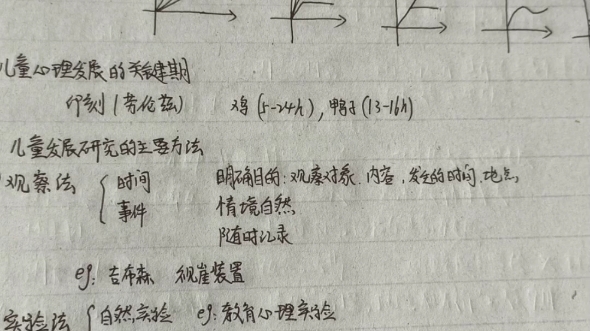 儿童心理发展的关键期
印刻(劳伦兹) 鸡(5-24h),鸭子(13-16h)
儿童发展研究的主要方法
观察法 { 时间 明确目的:观察对象、内容,发生的时间、地点
事件 情境自然
随时记录
eg: 吉布森 视崖装置
实验法 { 自然实验 eg: 教育心理实验